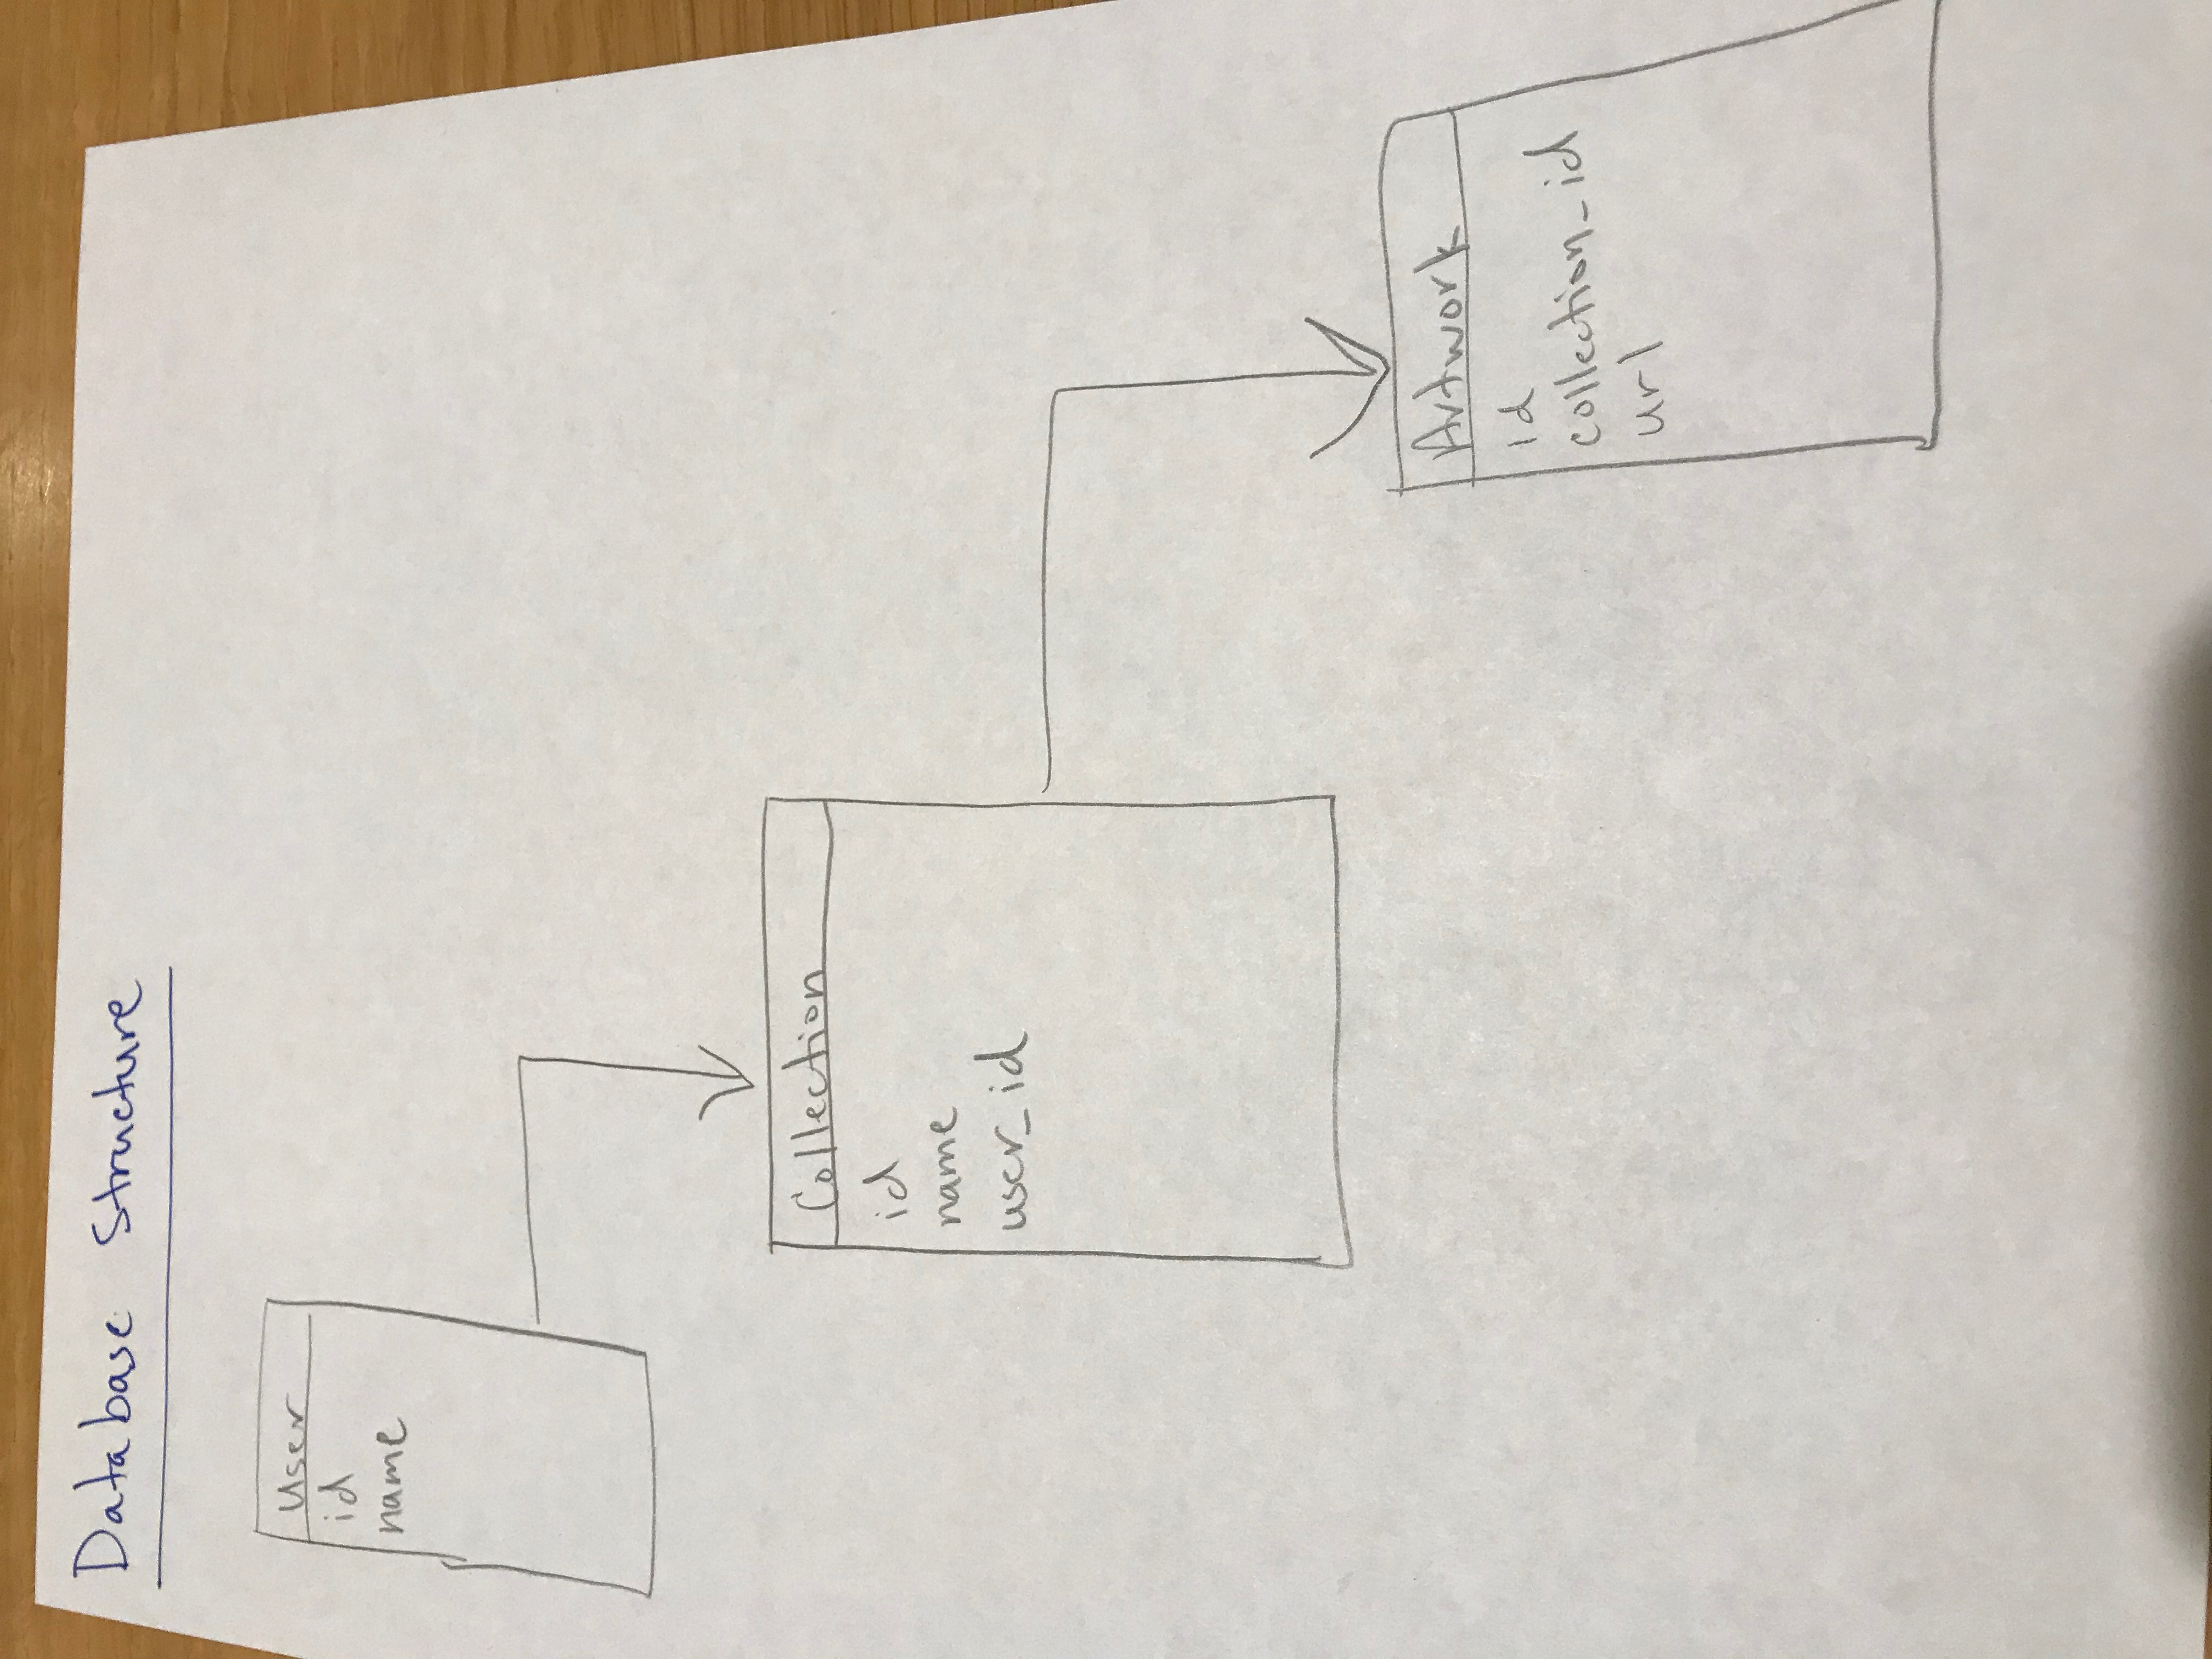 Database Structure
User
id
name
Collection
id
name
user_id
Artwork
id
collection_id
url